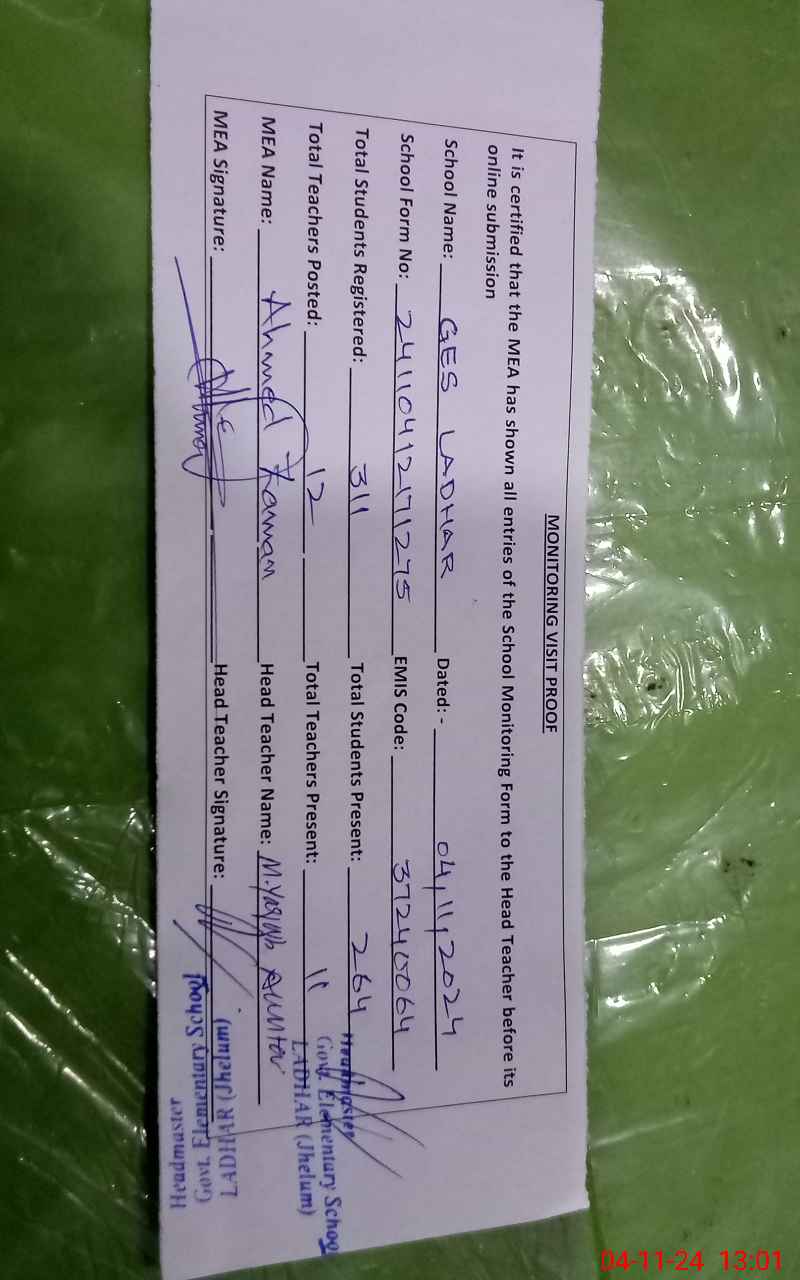 MONITORING VISIT PROOF
It is certified that the MEA has shown all entries of the School Monitoring Form to the Head Teacher before its
online submission
School Name: GES LADHAR Dated: - 04,11,2024
School Form No: 24110412171275 EMIS Code: 37240064
Total Students Registered: 311 Total Students Present: 264
Total Teachers Posted: 12 Total Teachers Present: 11
MEA Name: Ahmed Zaman Head Teacher Name: M. Yaqub
MEA Signature: Head Teacher Signature:
Headmaster
Govt. Elementary School
LADHAR (Jhelum)
Headmaster
Govt. Elementary School
LADHAR (Jhelum)
04-11-24 13:01